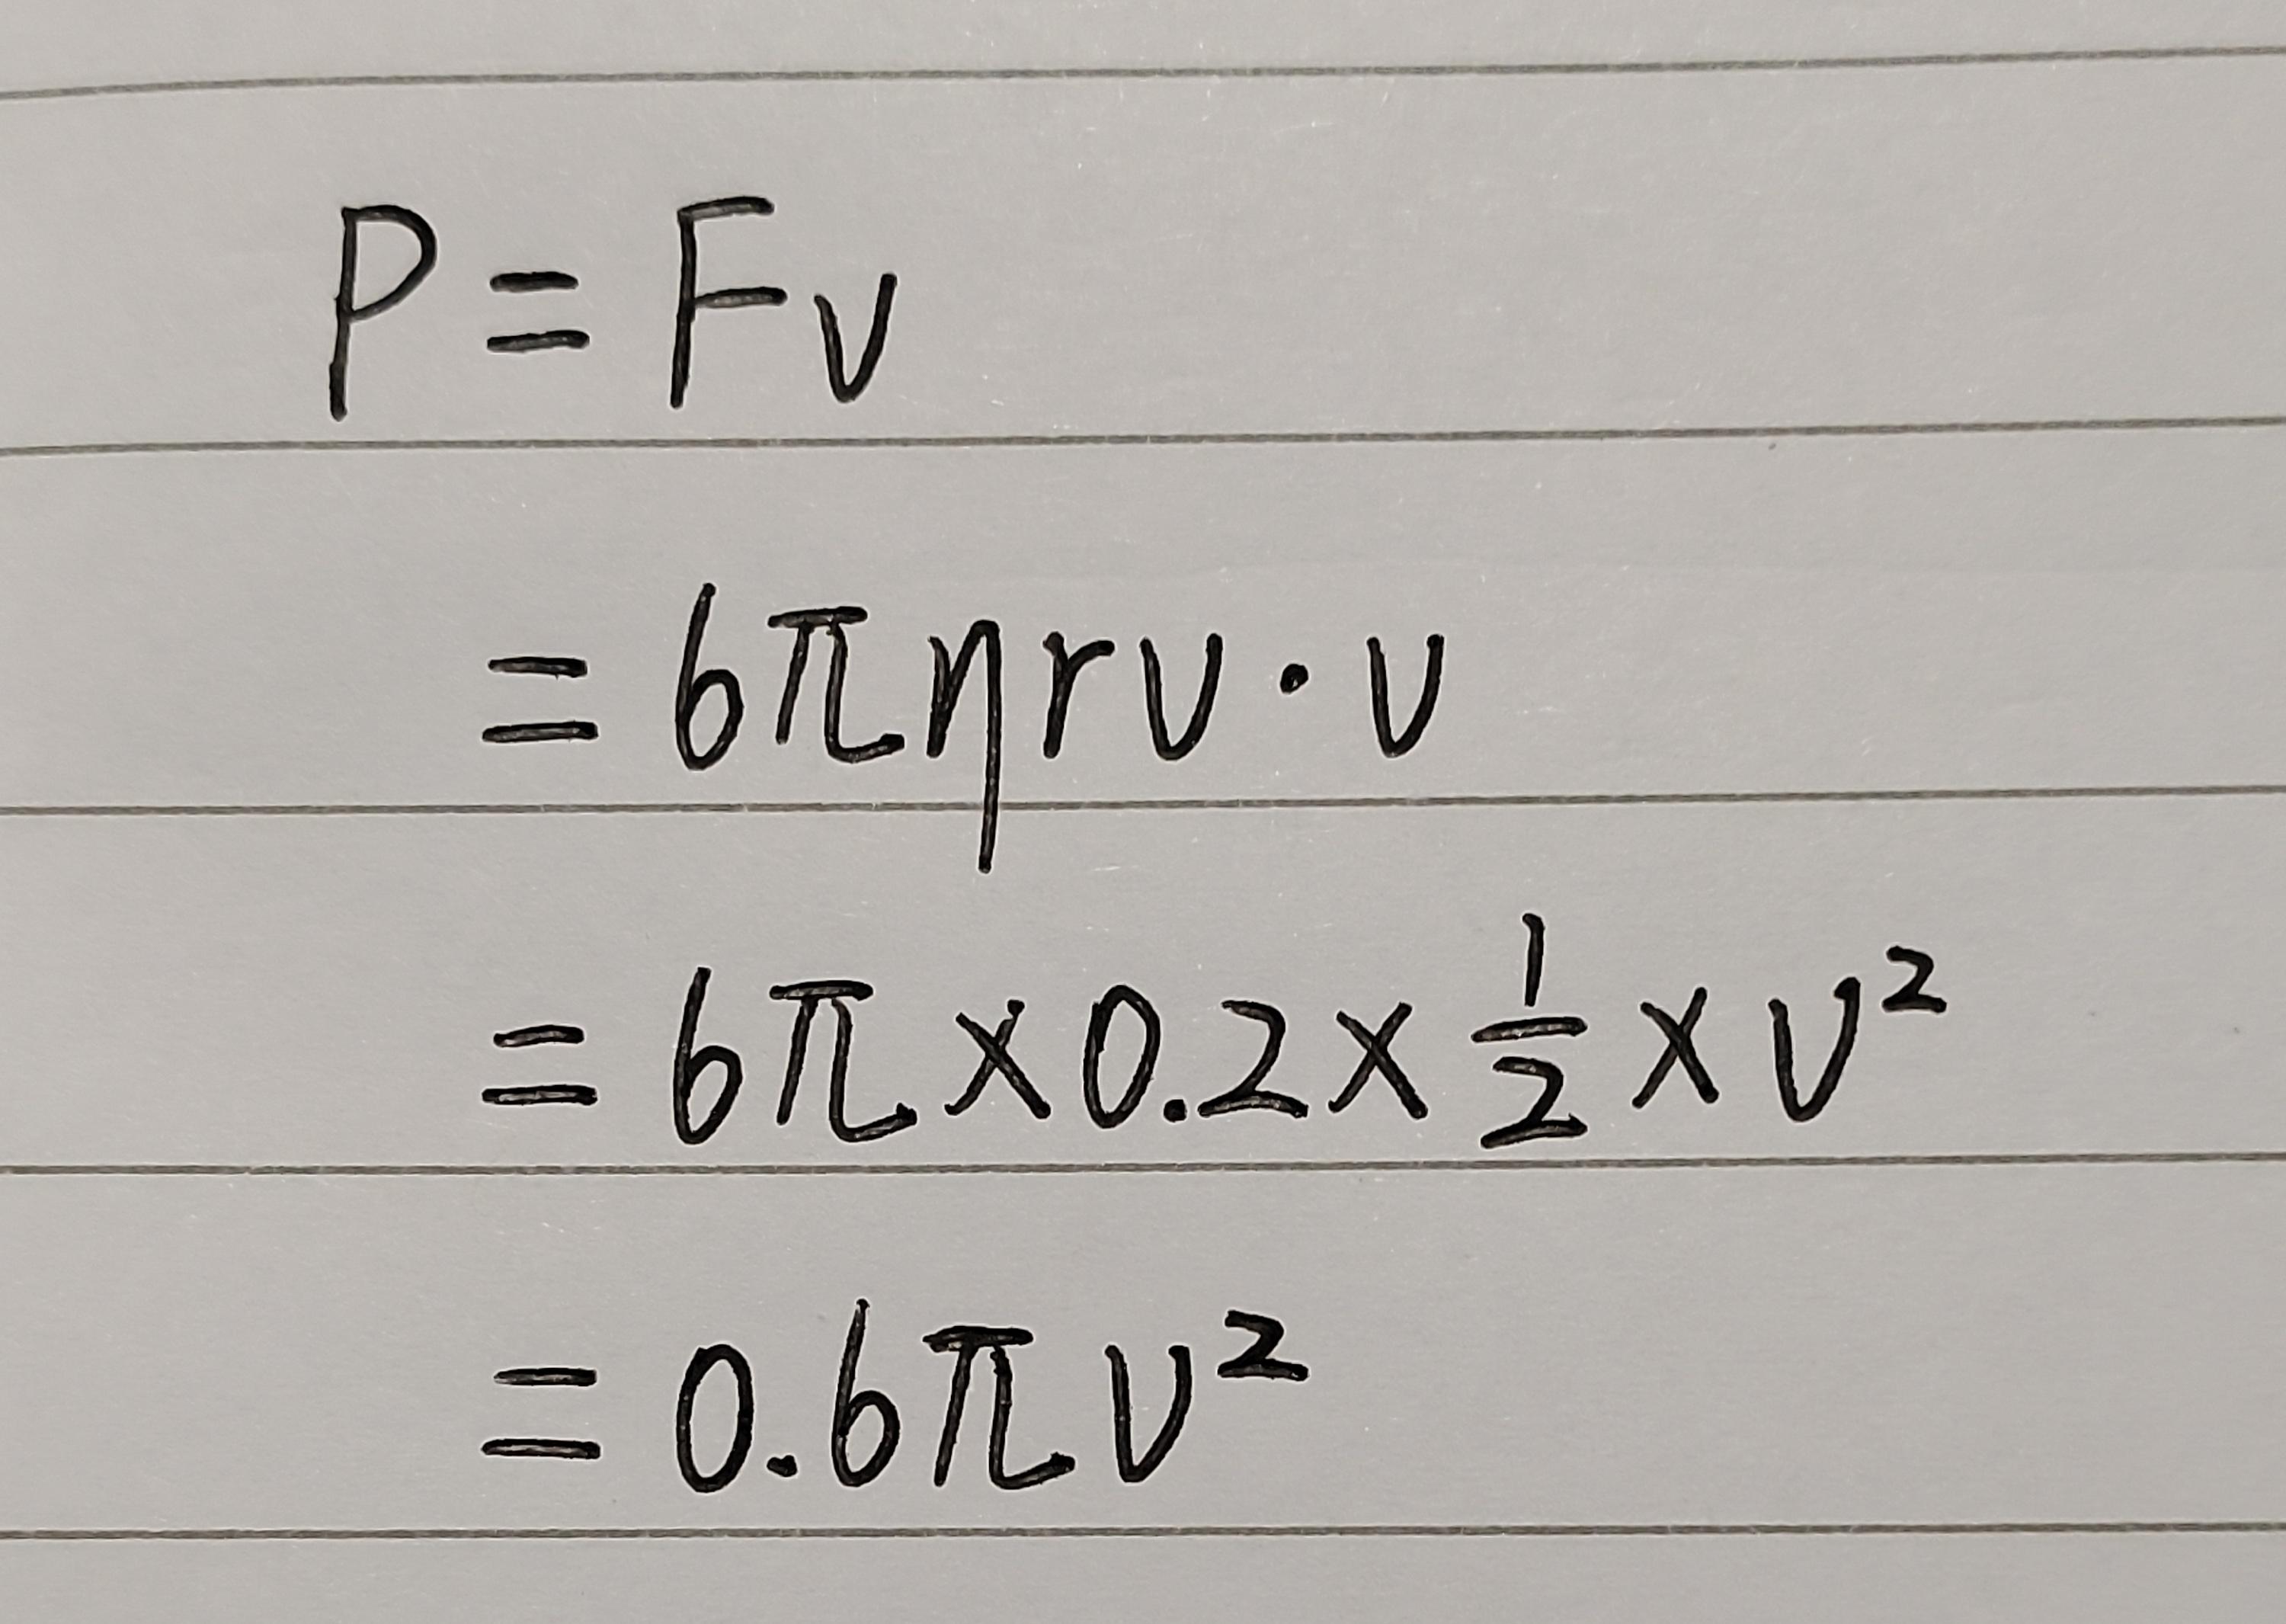 P = Fv
= 6πηrv · v
= 6π × 0.2 × 1/2 × v²
= 0.6πv²